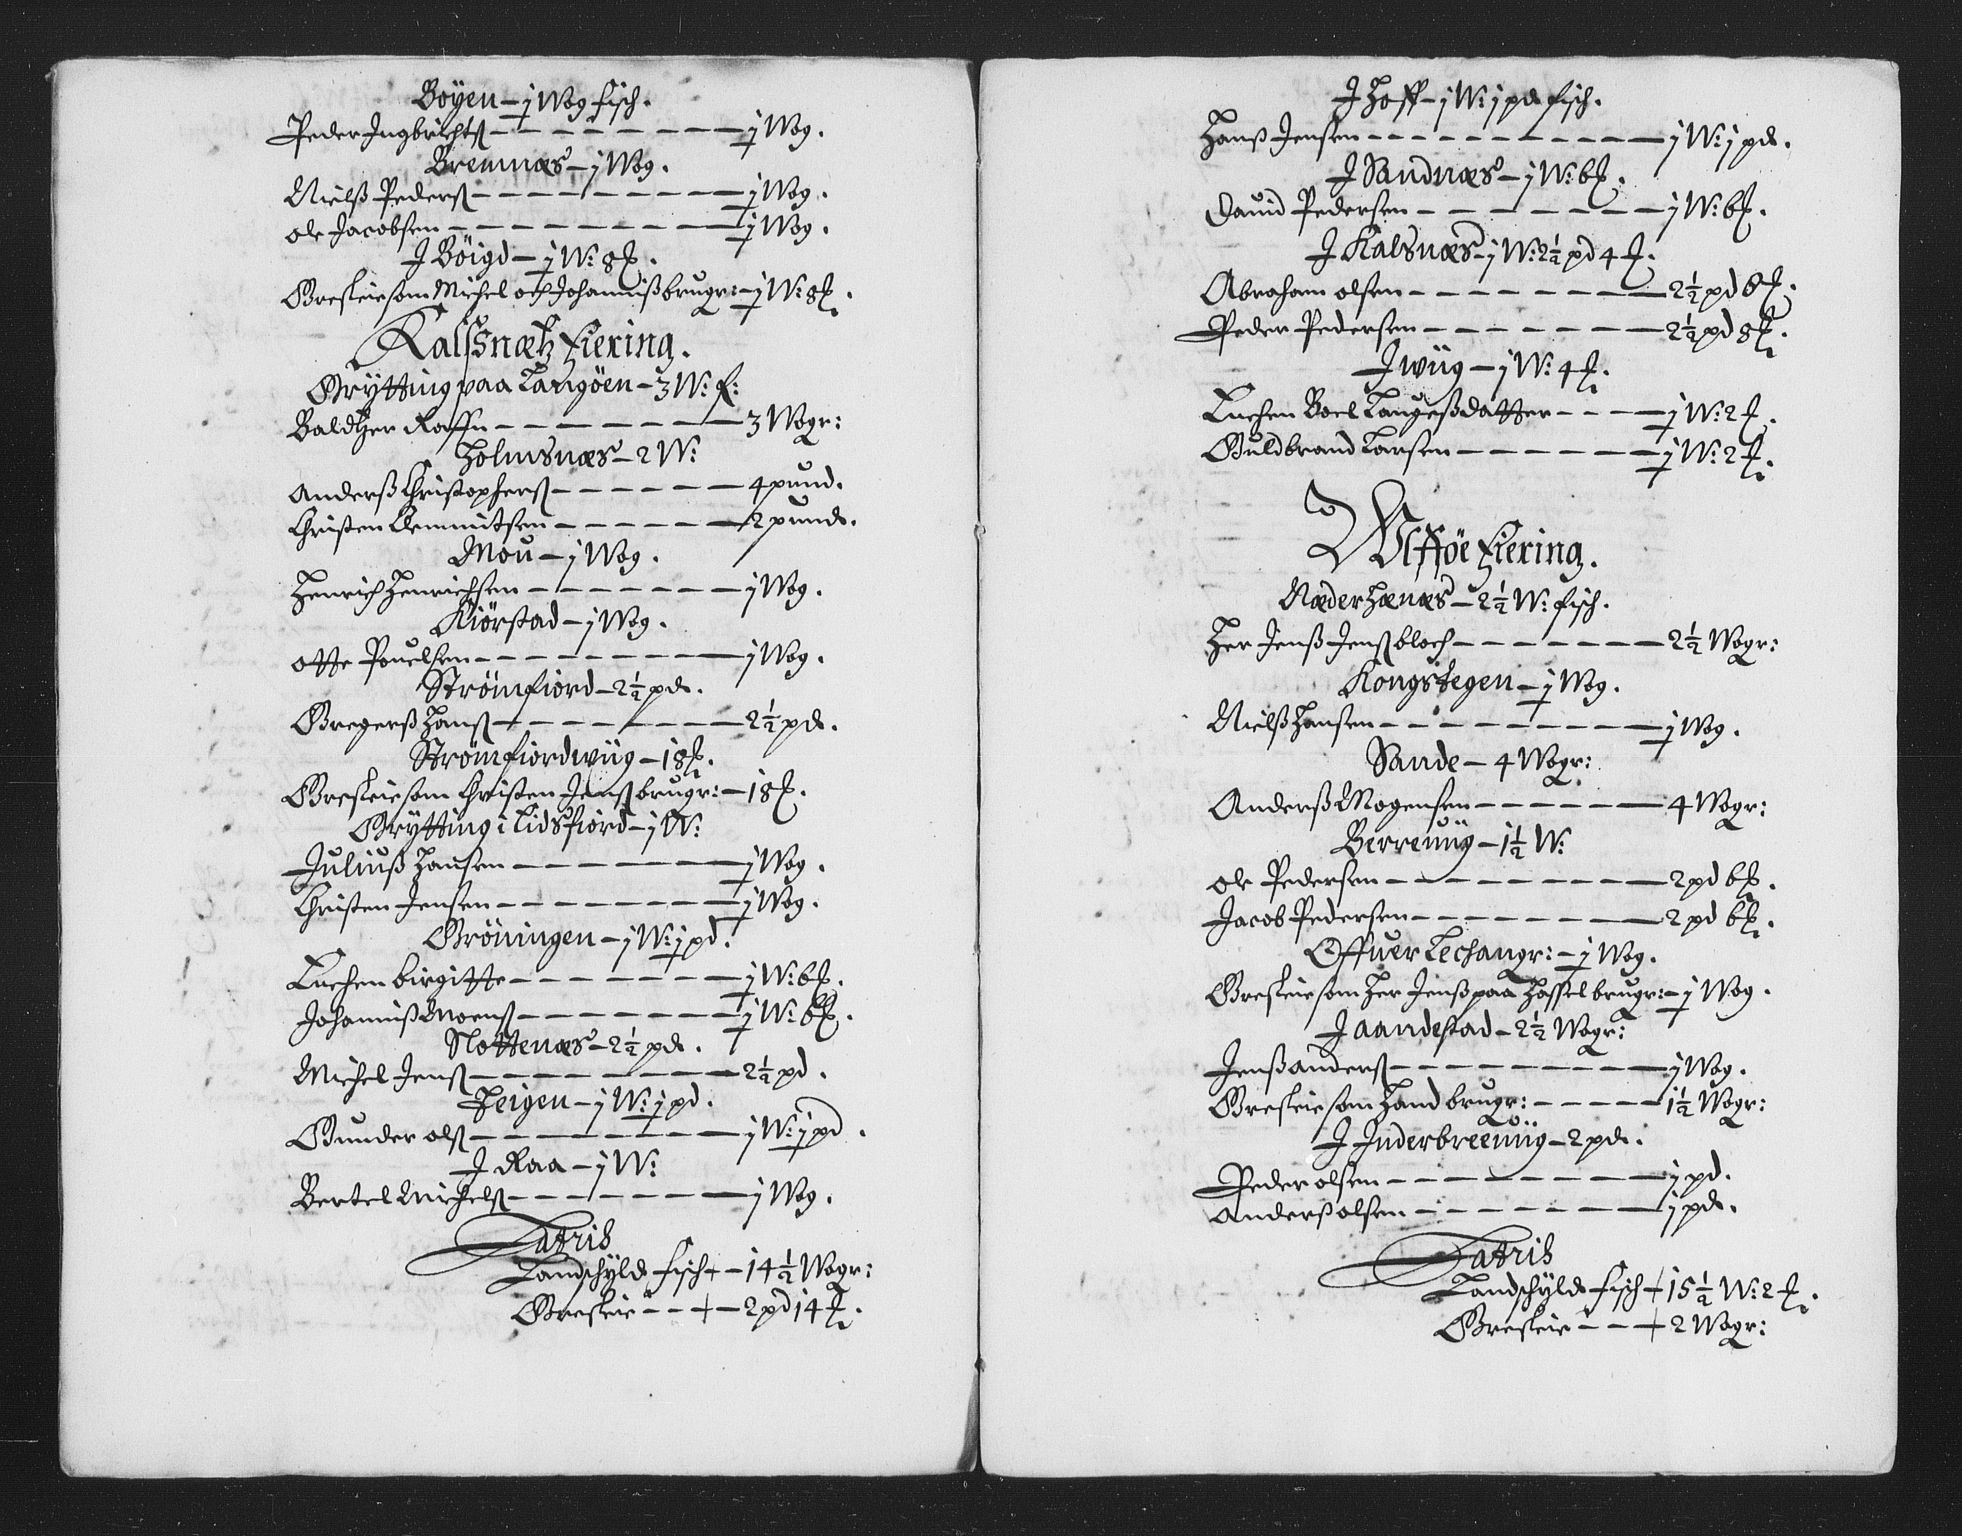 Böyen – j Wog fisch.
Peder Ingbrichtß – j Wog.
Bremnæs – j Wog.
Nielß Pederß – j Wog.
Ole Jacobsen – j Wog.
J Böigd – j W: 8 ℔.
Gresleie som Michel och Johannißbrugr: – j W: 8 ℔.
Kalfsnæß Fiering.
Grÿtting paa Langöen – 3 W: f:
Baldtzer Raffn – 3 Wogr:
Holmsnæs – 2 W:
Anderß Christopherß – 4 pund.
Christen Clemmitsen – 2 pund.
Mou – j Wog.
Henrich Henrichsen – j Wog.
Kiörstad – j Wog.
Otte Pouelsen – j Wog.
Strömfiord – 2½ pd.
Gregerß Hanß – 2½ pd.
Strömfiordwiig – 18 ℔.
Gresleie som Christen Jenß brugr: – 18 ℔.
Grÿtting i Eidsfiord – j W:
Juliuß Hansen – j Wog.
Christen Jensen – j Wog.
Gröningen – j W: j pd.
Enchen Birgitte – j W: 6 ℔.
Johanniß Moenß – j W: 6 ℔.
Slottenæs – 2½ pd.
Michel Jenß – 2½ pd.
Teigen – j W: j pd.
Gunder Olß – j W: j pd.
J Raa – j W:
Bertel Michelß – j Wog.
Latris
Landschÿld fisch – 14½ Wogr:
Gresleie – 2 pd 14 ℔.
J Hoff – j W: j pd fisch.
Hanß Jensen – j W: j pd.
J Sandnæs – j W: 6 ℔.
Dauid Pedersen – j W: 6 ℔.
J Kalsnæs – j W: 2½ pd 4 ℔.
Abraham Olsen – 2½ pd 8 ℔.
Peder Pedersen – 2½ pd 8 ℔.
J wiig – j W: 4 ℔.
Enchen Boel Langeßdatter – j W: 2 ℔.
Guldbrand Larsen – j W: 2 ℔.
Ulföe Fiering.
Næderhænæs – 2½ W: fisch.
Her Jenß Jenß bloch – 2½ Wogr:
Kongstegen – j Wog.
Nielß Hansen – j Wog.
Sande – 4 Wogr:
Anderß Mogensen – 4 Wogr:
Berreuiig – 1½ W:
Ole Pedersen – 2 pd 6 ℔.
Jacob Pedersen – 2 pd 6 ℔.
Offuer Lechangr: – j Wog.
Gresleie som Her Jenß paa Hassel brugr: – j Wog.
J aandestad – 2½ Wogr:
Jenß anderß – j Wog.
Gresleie som Hand brugr: – 1½ Wogr:
J Inderbreeuiig – 2 pd.
Peder olsen – j pd.
Anderß olsen – j pd.
Latris
Landschÿld fisch – 15½ W: 2 ℔.
Gresleie – 2 Wogr: